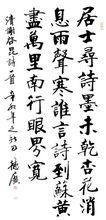 居士尋詩墨未乾杏花消
息雨聲寒誰言詩到蘇黃
盡萬里南行眼界寬
清謝啟昆詩一首
辛卯年之